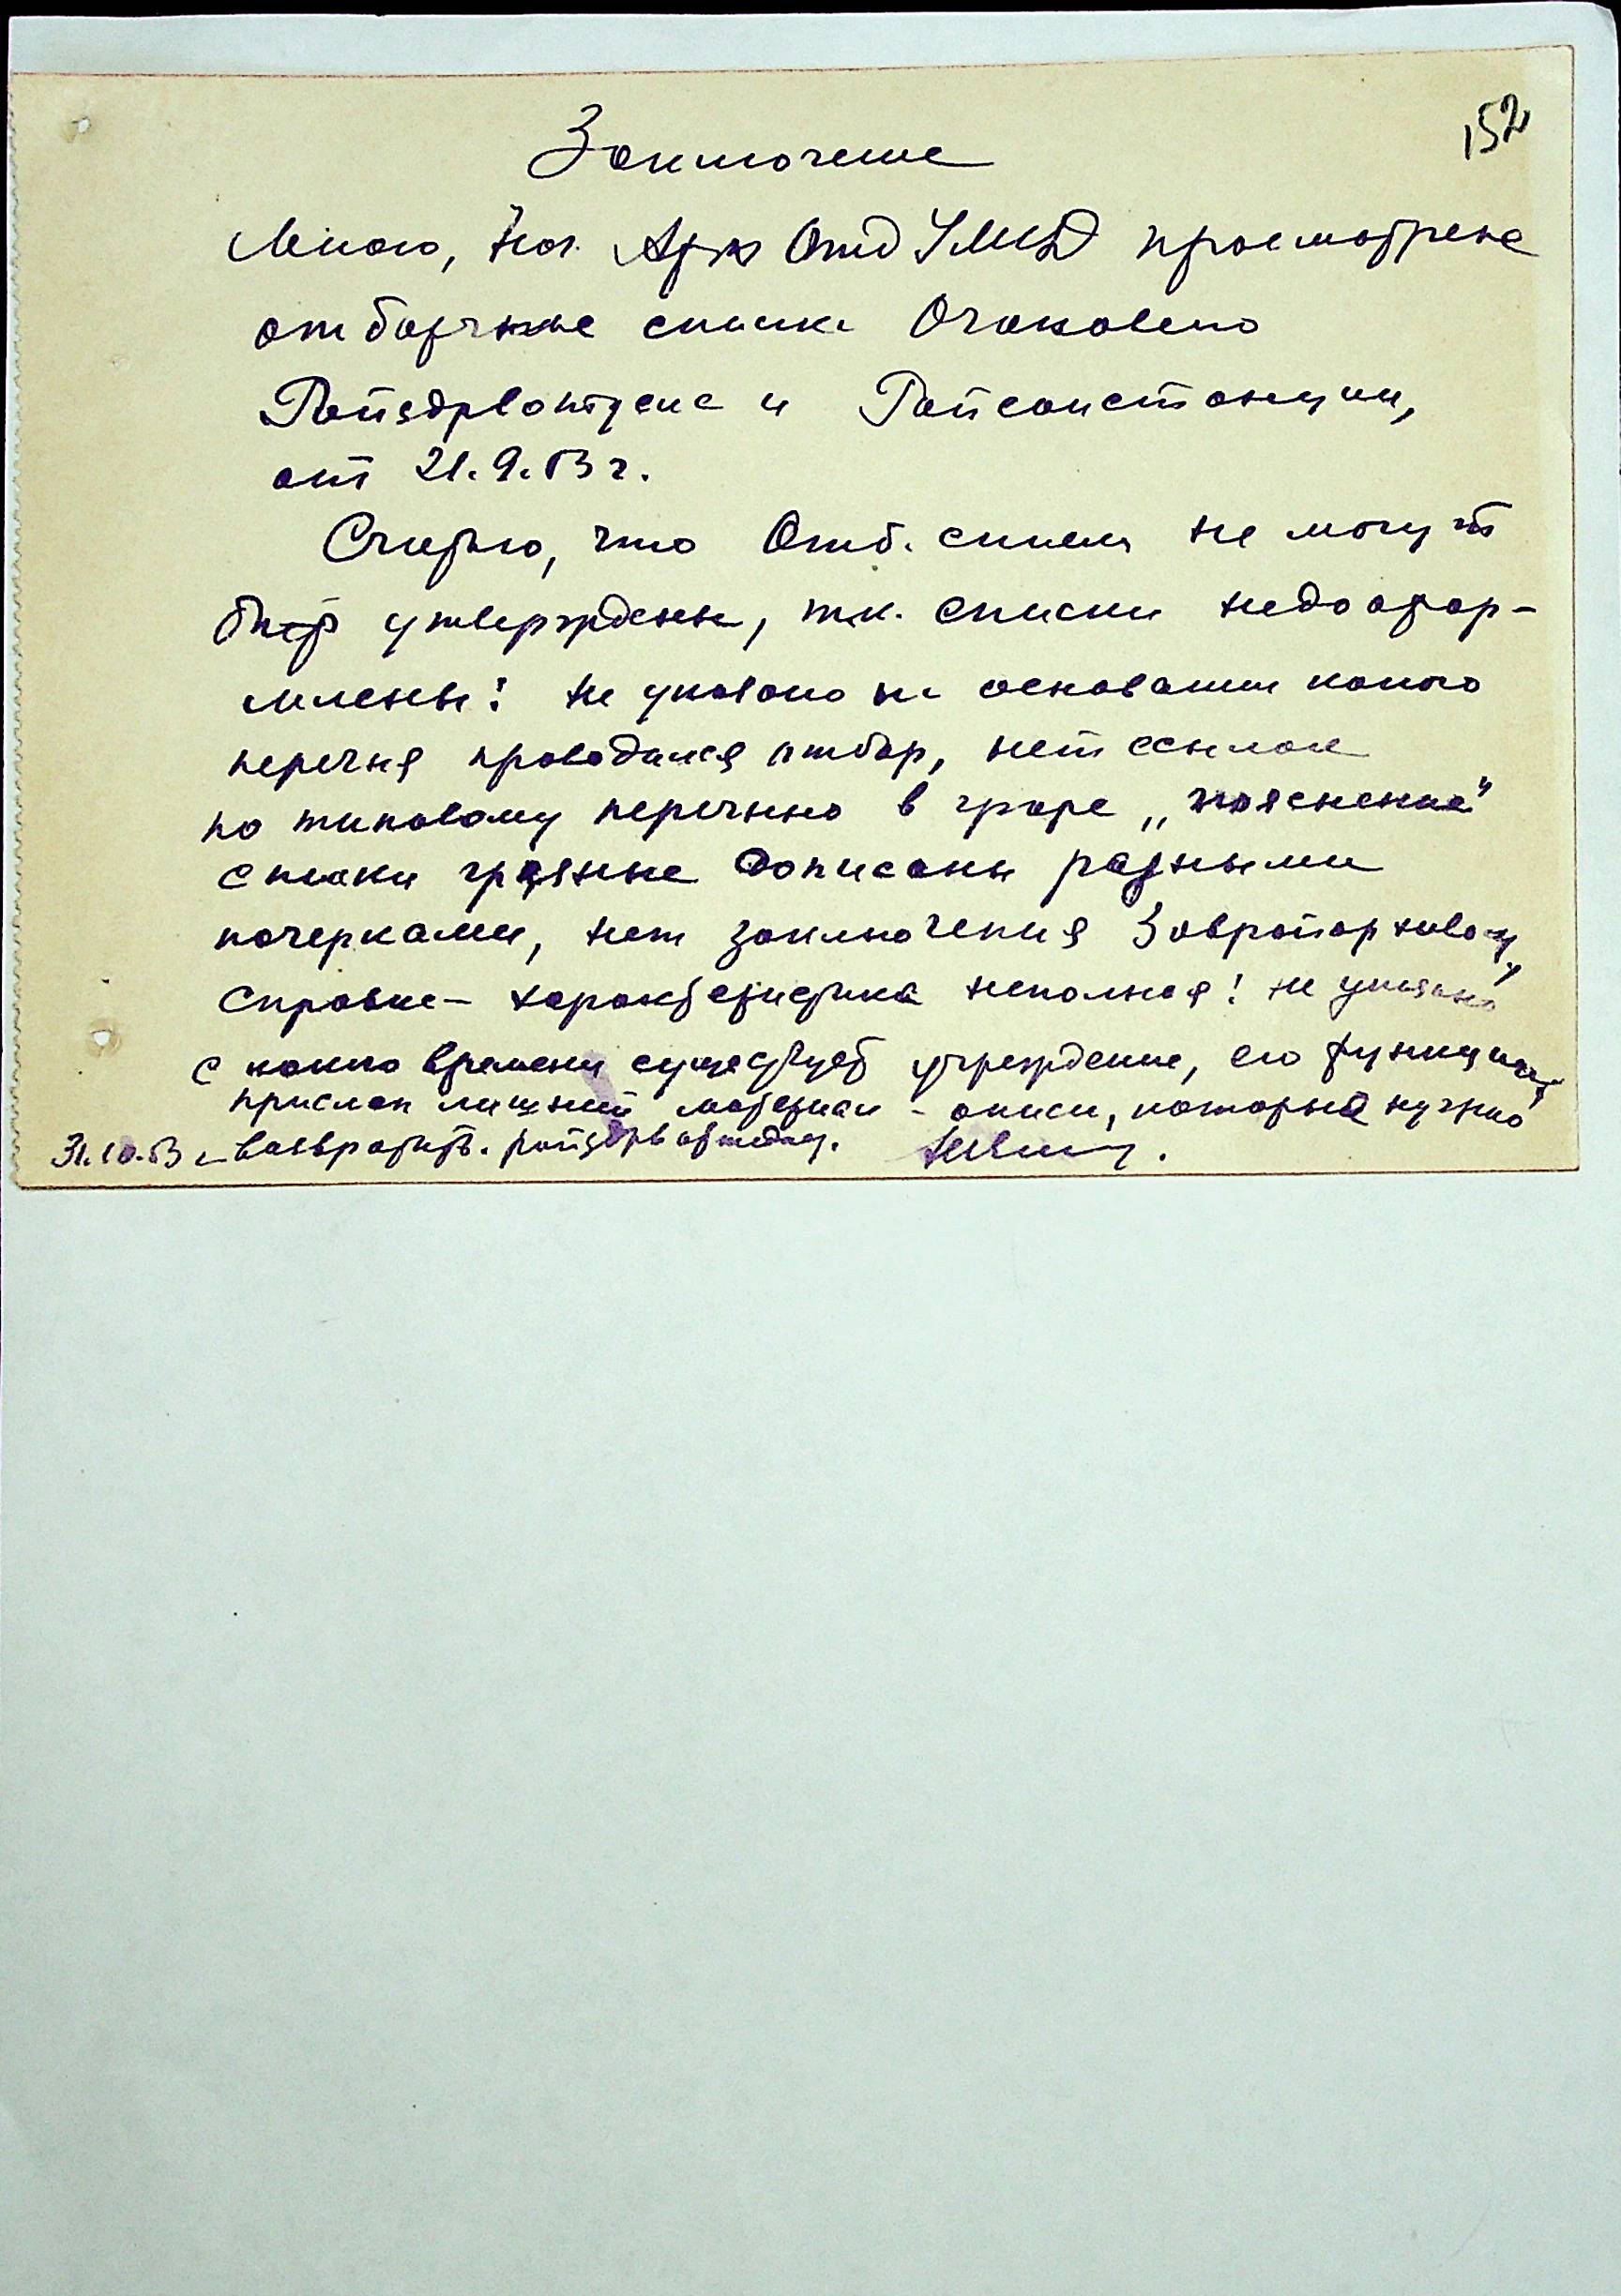 152
Заключение
Мною, Нач. Арх Отд УМВД просмотрены
отборочные списки Очаковского
Райздравотдела и Райсанстанции,
от 21.9.53 г.
Считаю, что Отб. списки не могут
быть утверждены, т.к. списки недоофор-
млены: не указано на основании какого
перечня проводился отбор, нет ссылок
по типовому перечню в графе „пояснения"
списки грязные дописаны разными
почерками, нет заключения Заврайархивом,
Справка-характеристика неполная! не указано
с какого времени существует учреждение, его функции,
прислан лишний материал - описи, которые нужно
31.10.53 возвратить райздравотделу.